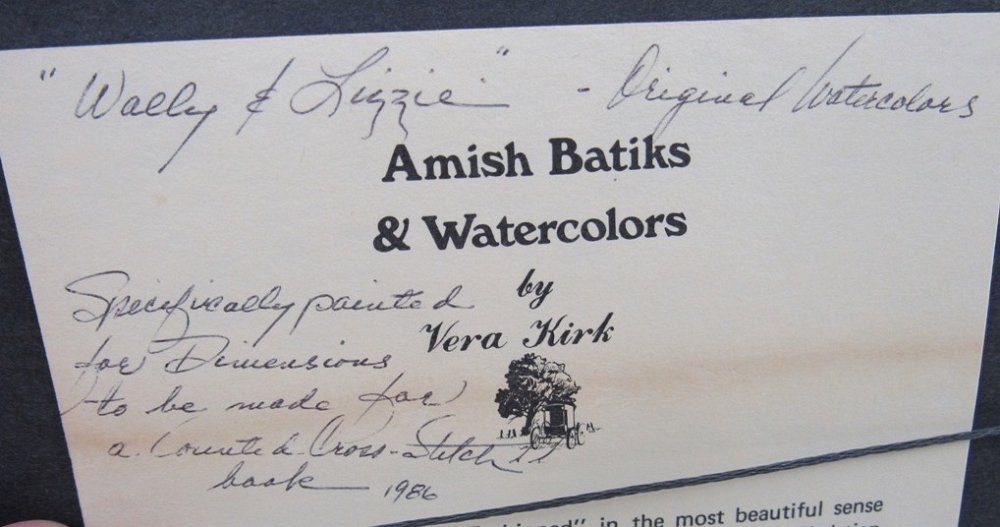 "Wally & Lizzie" - Original Watercolors
Amish Batiks
& Watercolors
by
Vera Kirk
Specifically painted
for Dimensions
to be made for
a Counted Cross-Stitch
book 1986
in the most beautiful sense